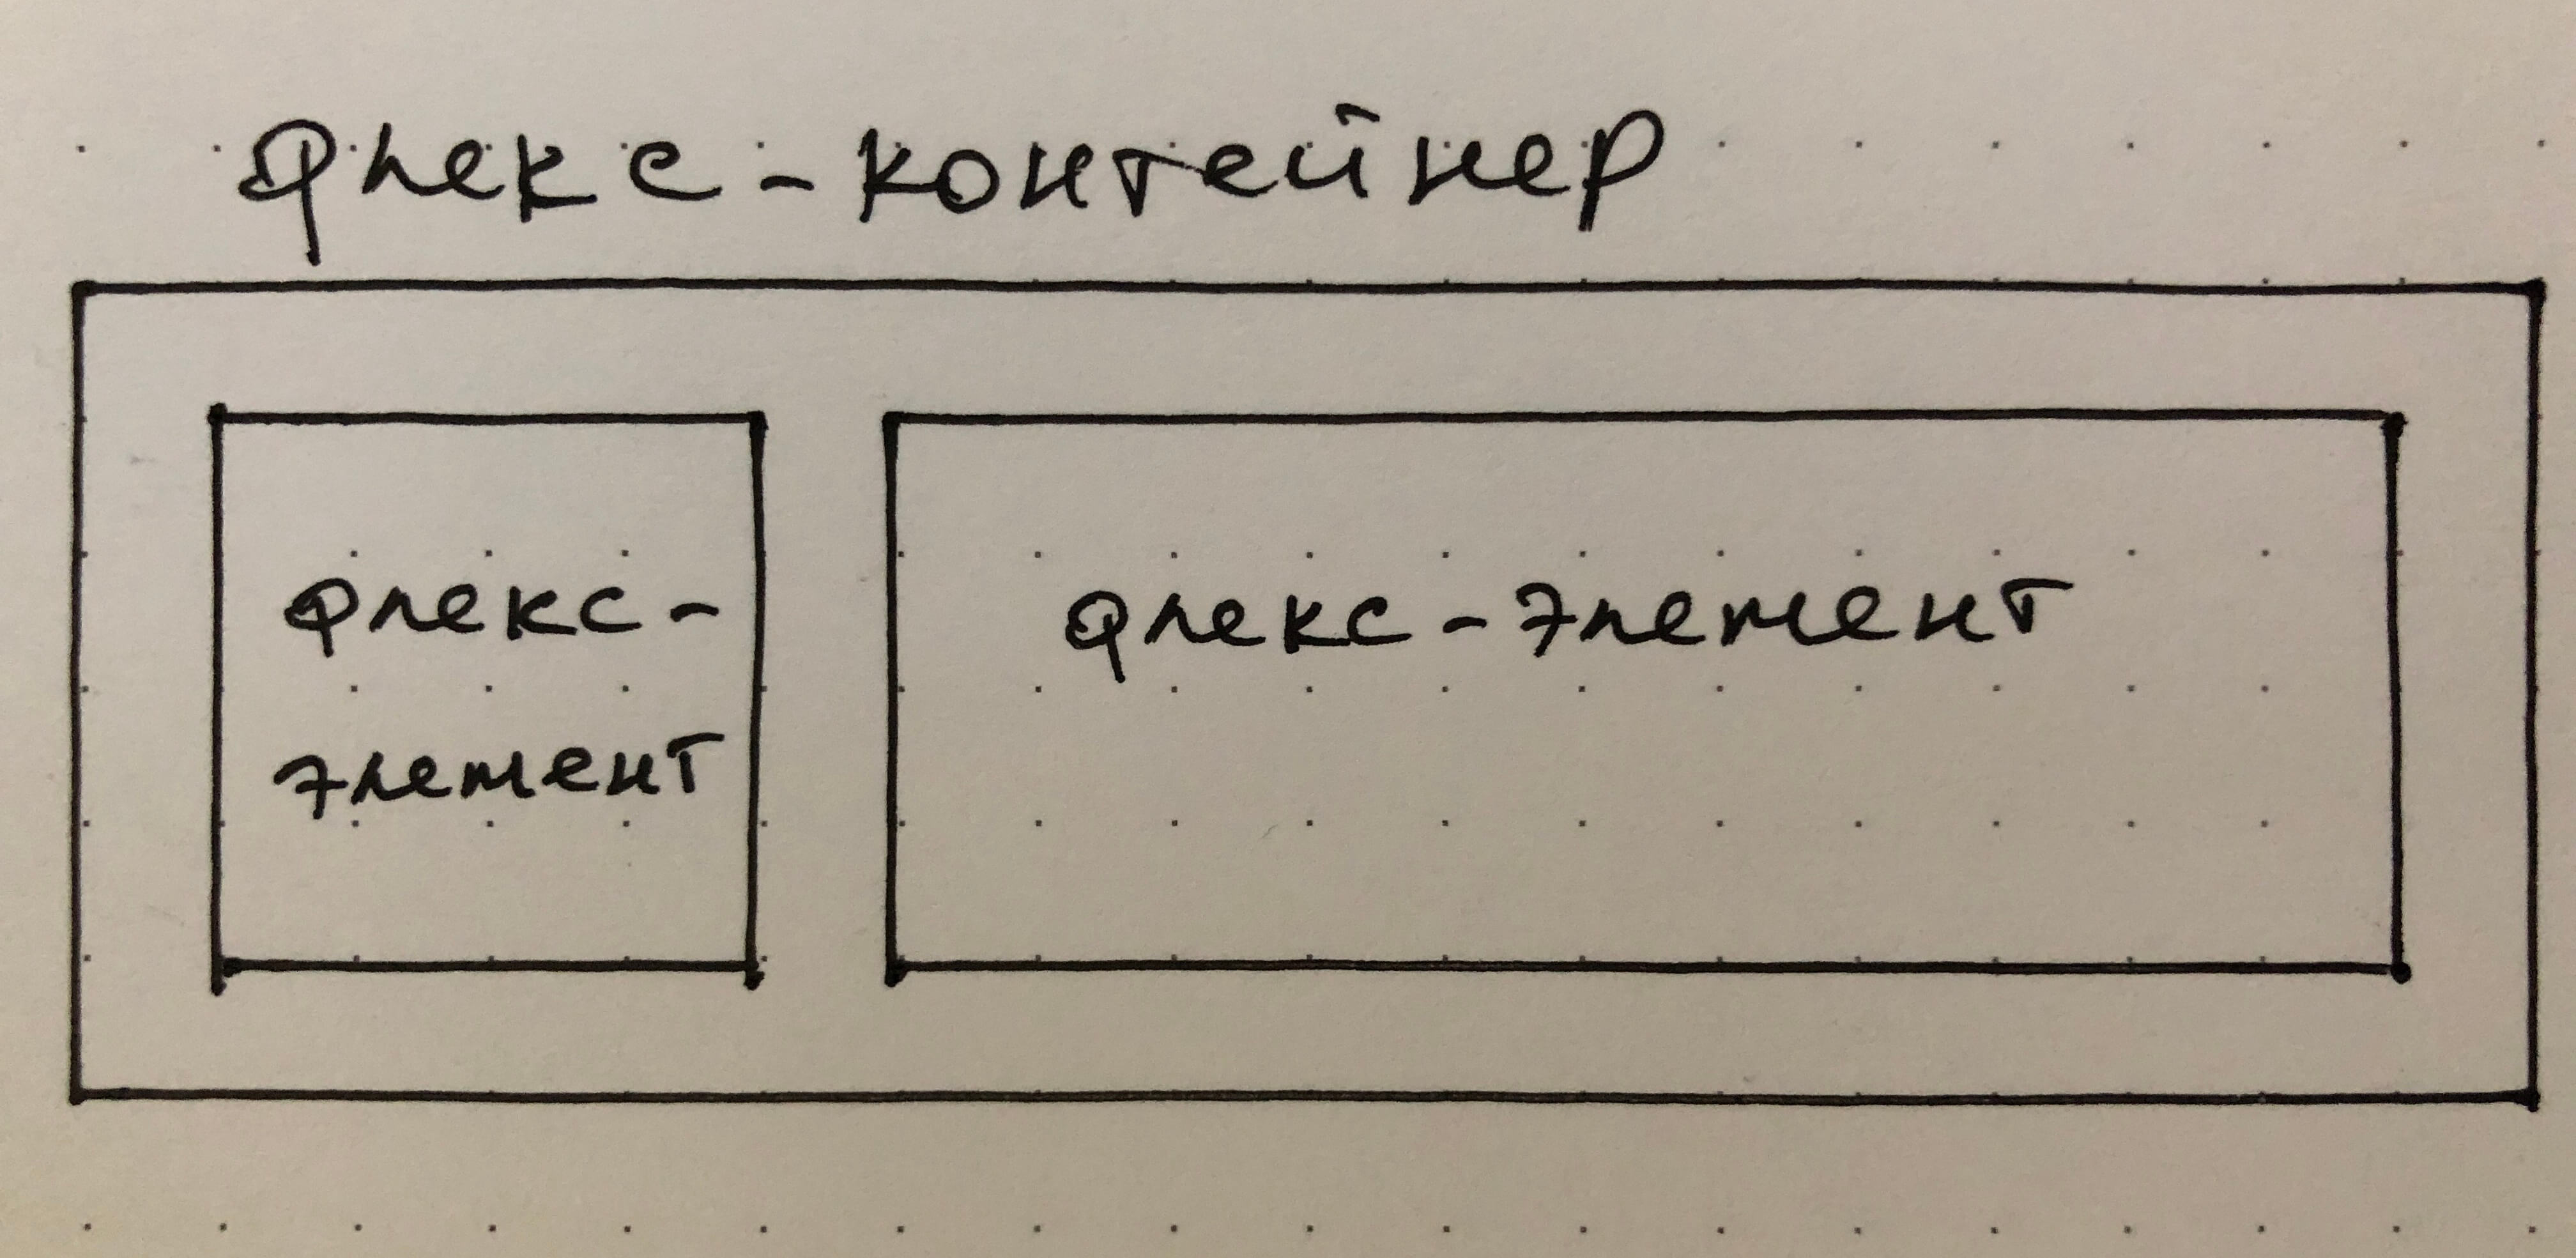 флекс-контейнер
флекс-
элемент
флекс-элемент